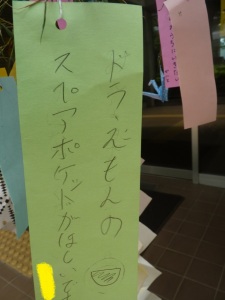 ドラえもんの
スペアポケットがほしいです